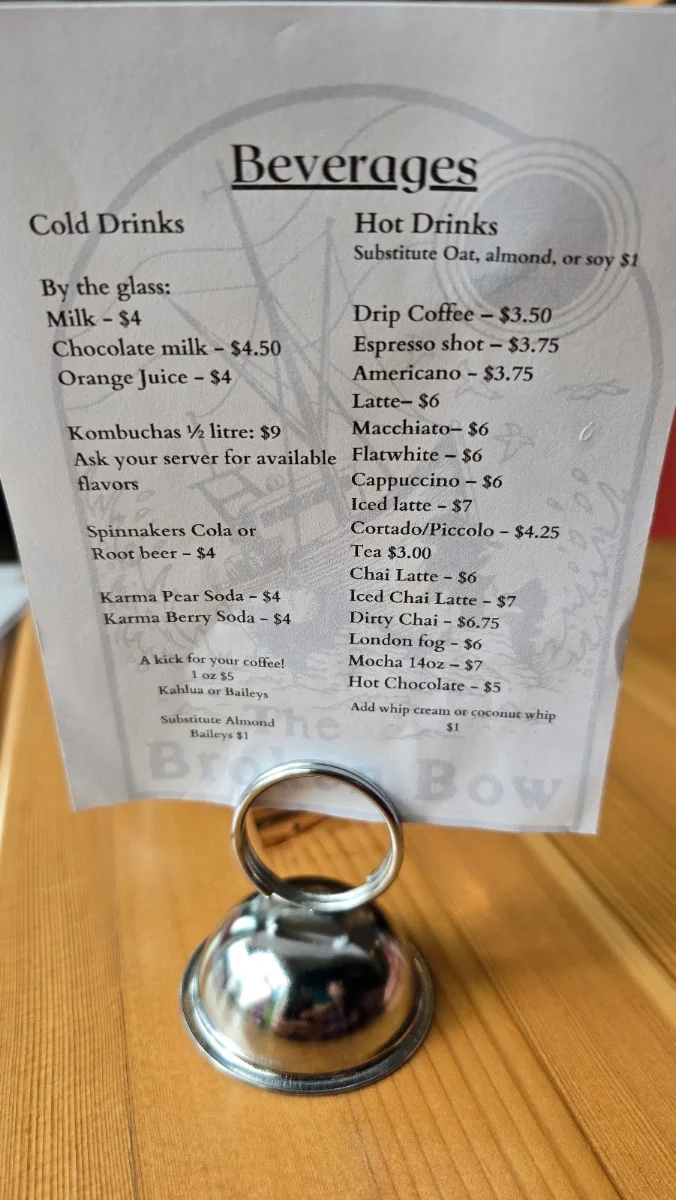 Beverages
Cold Drinks
By the glass:
Milk – $4
Chocolate milk – $4.50
Orange Juice – $4
Kombuchas ½ litre: $9
Ask your server for available
flavors
Spinnakers Cola or
Root beer – $4
Karma Pear Soda – $4
Karma Berry Soda – $4
A kick for your coffee!
1 oz $5
Kahlua or Baileys
Substitute Almond
Baileys $1
Hot Drinks
Substitute Oat, almond, or soy $1
Drip Coffee – $3.50
Espresso shot – $3.75
Americano – $3.75
Latte– $6
Macchiato– $6
Flatwhite – $6
Cappuccino – $6
Iced latte – $7
Cortado/Piccolo – $4.25
Tea $3.00
Chai Latte – $6
Iced Chai Latte – $7
Dirty Chai – $6.75
London fog – $6
Mocha 14oz – $7
Hot Chocolate – $5
Add whip cream or coconut whip
$1
The
Broken Bow